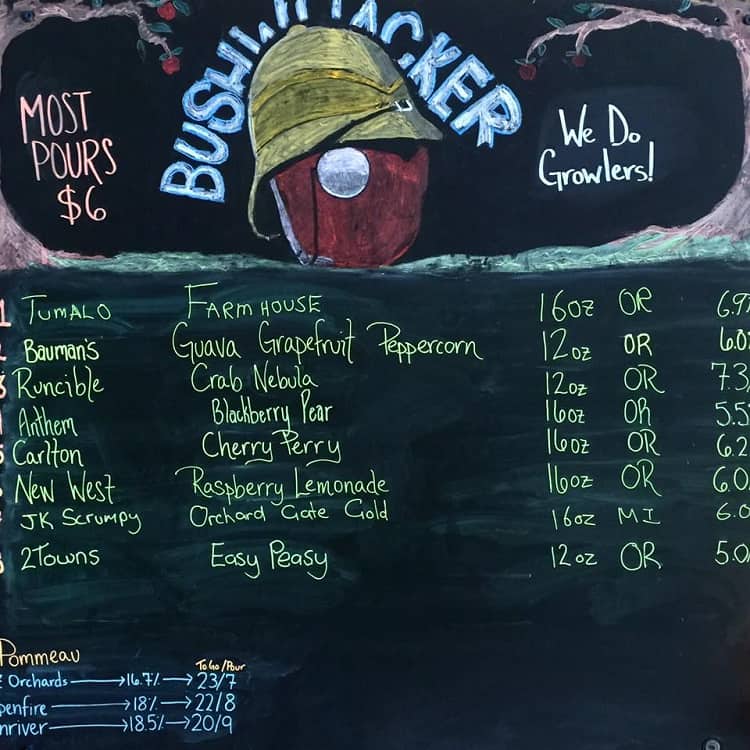 BUSHWHACKER
MOST
POURS
$6
We Do
Growlers!
1 TUMALO FARMHOUSE 16oz OR 6.9%
2 Bauman's Guava Grapefruit Peppercorn 12oz OR 6.0
3 Runcible Crab Nebula 12oz OR 7.3
Anthem Blackberry Pear 16oz OR 5.5
5 Carlton Cherry Perry 16oz OR 6.2
New West Raspberry Lemonade 16oz OR 6.0
JK Scrumpy Orchard Gate Gold 16oz MI 6.0
2Towns Easy Peasy 12oz OR 5.0
Pommeau To Go/Pour
Orchards → 16.7% → 23/7
penfire → 18% → 22/8
nriver → 18.5% → 20/9